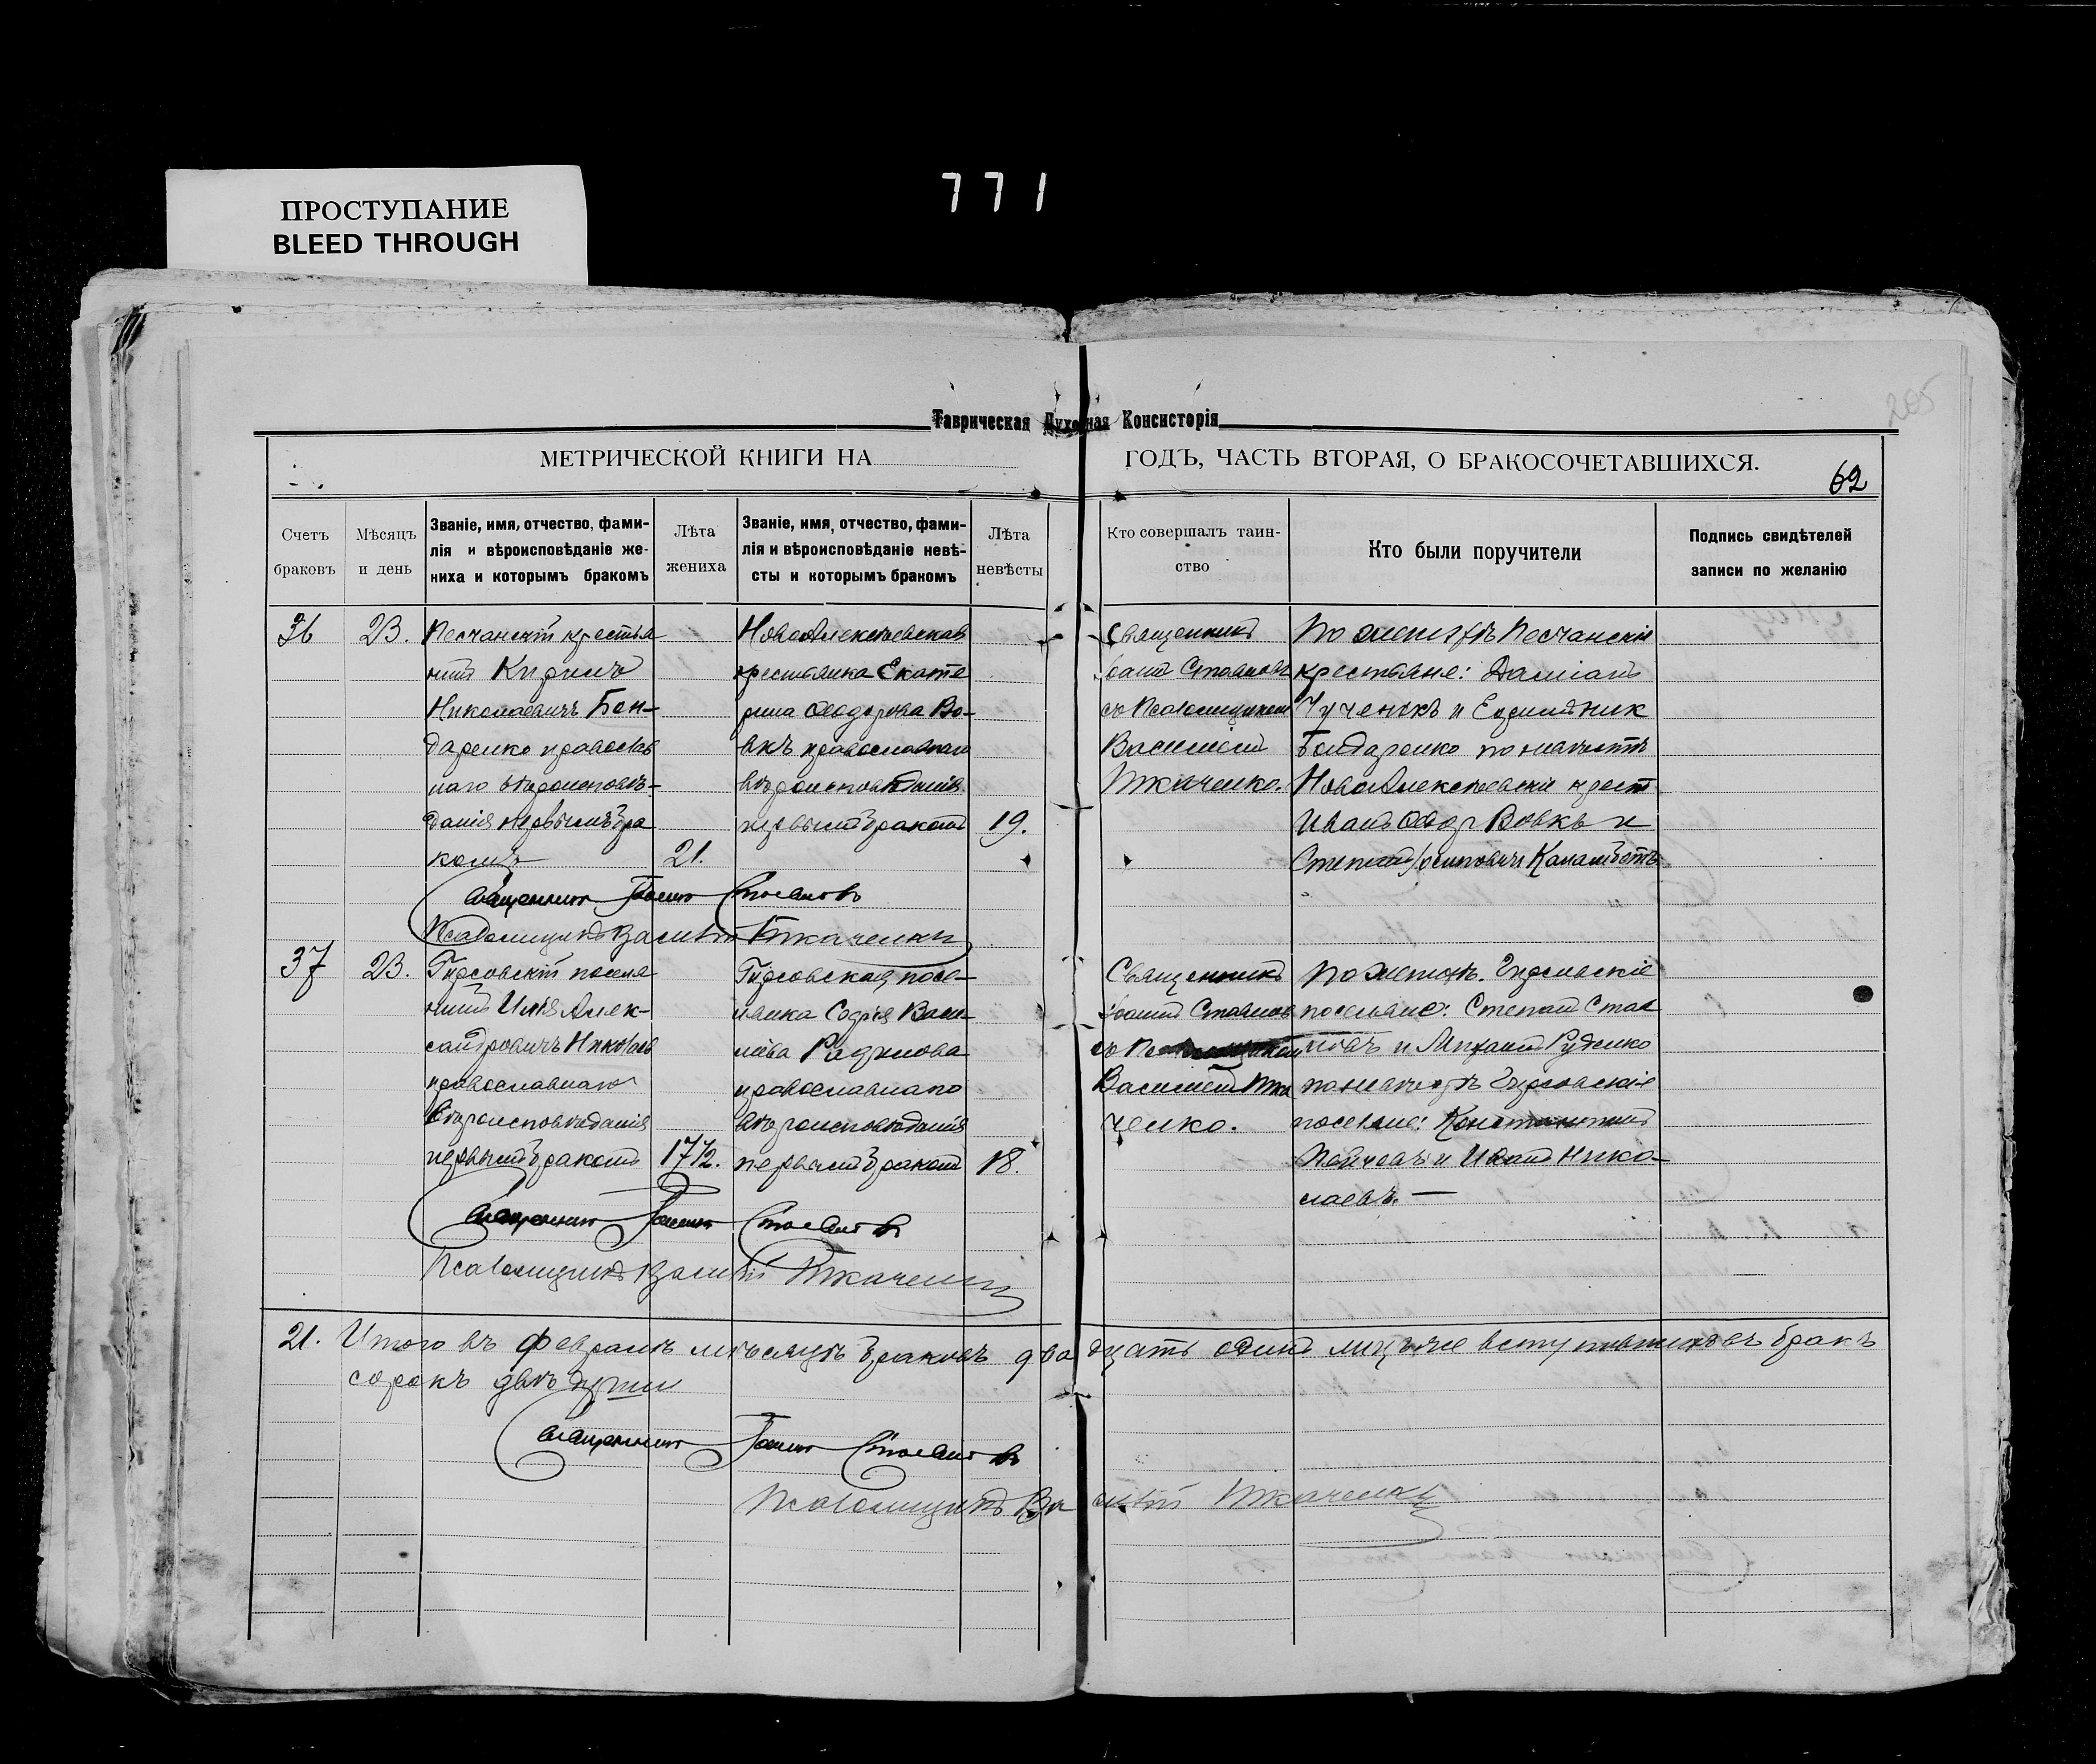 771
ПРОСТУПАНИЕ
BLEED THROUGH
205
Таврическая Духовная Консисторія
МЕТРИЧЕСКОЙ КНИГИ НА ГОДЪ, ЧАСТЬ ВТОРАЯ, О БРАКОСОЧЕТАВШИХСЯ.
62
Счетъ
браковъ
Мѣсяцъ
и день
Званіе, имя, отчество, фами-
лія и вѣроисповѣданіе же-
ниха и которымъ бракомъ
Лѣта
жениха
Званіе, имя, отчество, фами-
лія и вѣроисповѣданіе невѣ-
сты и которымъ бракомъ
Лѣта
невѣсты
Кто совершалъ таин-
ство
Кто были поручители
Подпись свидѣтелей
записи по желанію
36
23.
Песчанскій крестья
нинъ Кирилъ
Николаевичъ Бон-
даренко православ
наго вѣроисповѣ-
данія первымъ бра
комъ
21.
НовоАлексѣевская
крестьянка Екате
рина Ѳеодорова Во-
вкъ православнаго
вѣроисповѣданія
первымъ бракомъ
19.
Священникъ
Іоаннъ Стояновъ
съ Псаломщикомъ
Василіемъ
Ткаченко.
По женихѣ Песчанскіе
крестьяне: Даміанъ
Чученькъ и
Бондаренко по невѣстѣ
НовоАлексѣевскіе крест
Иванъ Ѳеод Вовкъ и
Степанъ Іосиповичъ
Священникъ Іоаннъ Стояновъ
Псаломщикъ Василій Ткаченко
37
23.
Гирсовскій поселя
нинъ Илія Алек-
сандровичъ Николаев
православнаго
вѣроисповѣданія
первымъ бракомъ
17 1/2.
Гирсовская посе-
лянка Софія Васи
ліева Радулова
православнаго
вѣроисповѣданія
первымъ бракомъ
18.
Священникъ
Іоаннъ Стоянов
съ Псаломщикомъ
Василіемъ Тка
ченко.
по женихѣ. Гирсовскіе
поселяне: Степанъ Стая
новъ и Михаилъ Руденко
по невѣстѣ Гирсовскіе
поселяне: Константинъ
Пейчевъ и Иванъ Нико-
лаевъ. —
Священникъ Іоаннъ Стояновъ
Псаломщикъ Василій Ткаченко
21. Итого въ Февралѣ мѣсяцѣ браковъ двадцать одинъ лицъ же вступившихъ въ бракъ
сорокъ двѣ души
Священникъ Іоаннъ Стояновъ
Псаломщикъ Василій Ткаченко